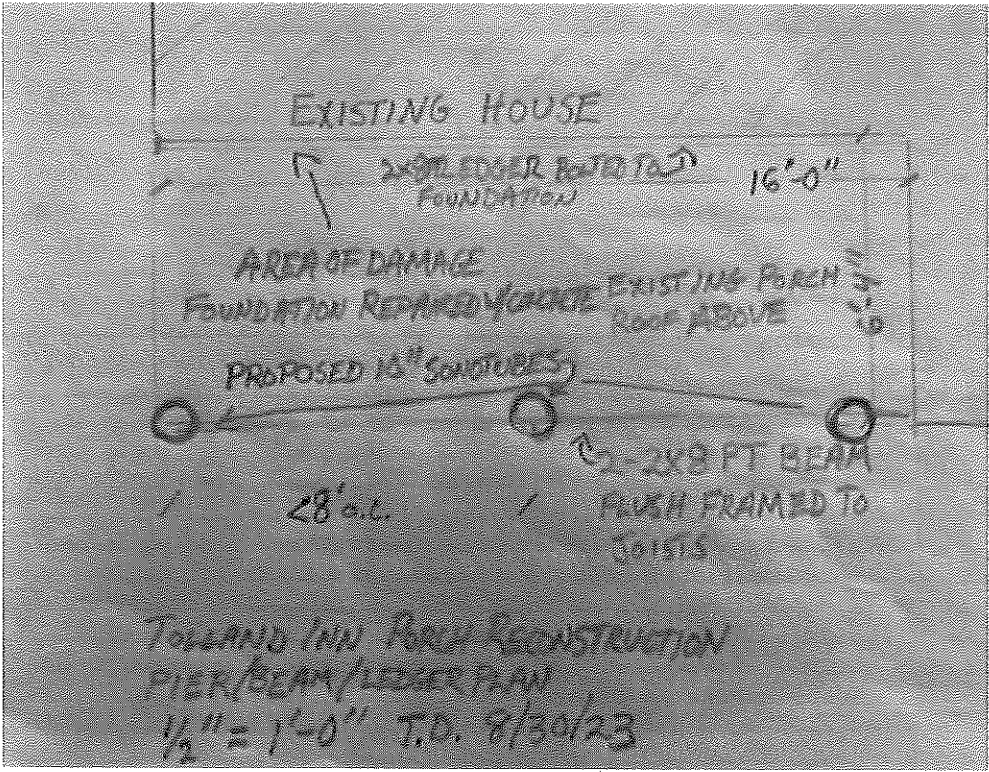 EXISTING HOUSE
LEDGER BOLTED TO
FOUNDATION
16'-0"
AREA OF DAMAGE
FOUNDATION REPAIRED W/
EXISTING PORCH
ROOF ABOVE
PROPOSED 10" SONOTUBES
2-2X8 PT BEAM
FLUSH FRAMED TO
JOISTS
<8' o.c.
TOLLAND INN PORCH RECONSTRUCTION
PIER/BEAM/LEDGER PLAN
1/2" = 1'-0" T.D. 8/30/23